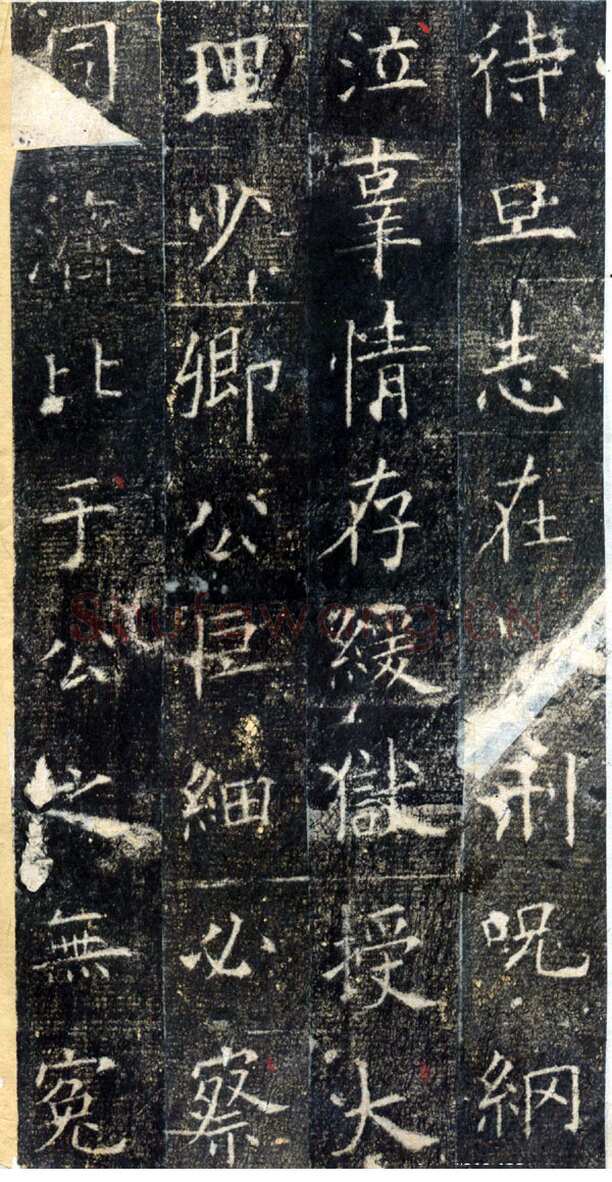 待旦志在利呪網
泣辜情存緩獄授大
理少卿公巨細必察
同比于公之無寃
Shufawang.CN